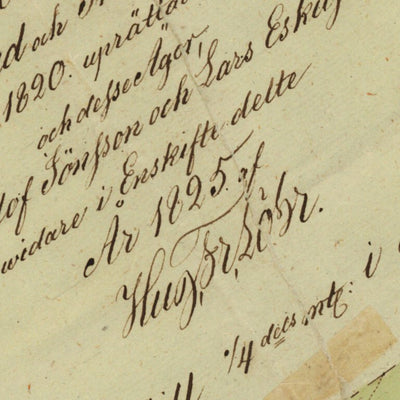 och
1820. uprättad
och desse Ägor,
Jönsson och Lars
widare i Enskifte delte
År 1825. af
Hug, Fr, Löhr.
1/4 decs mtl: i